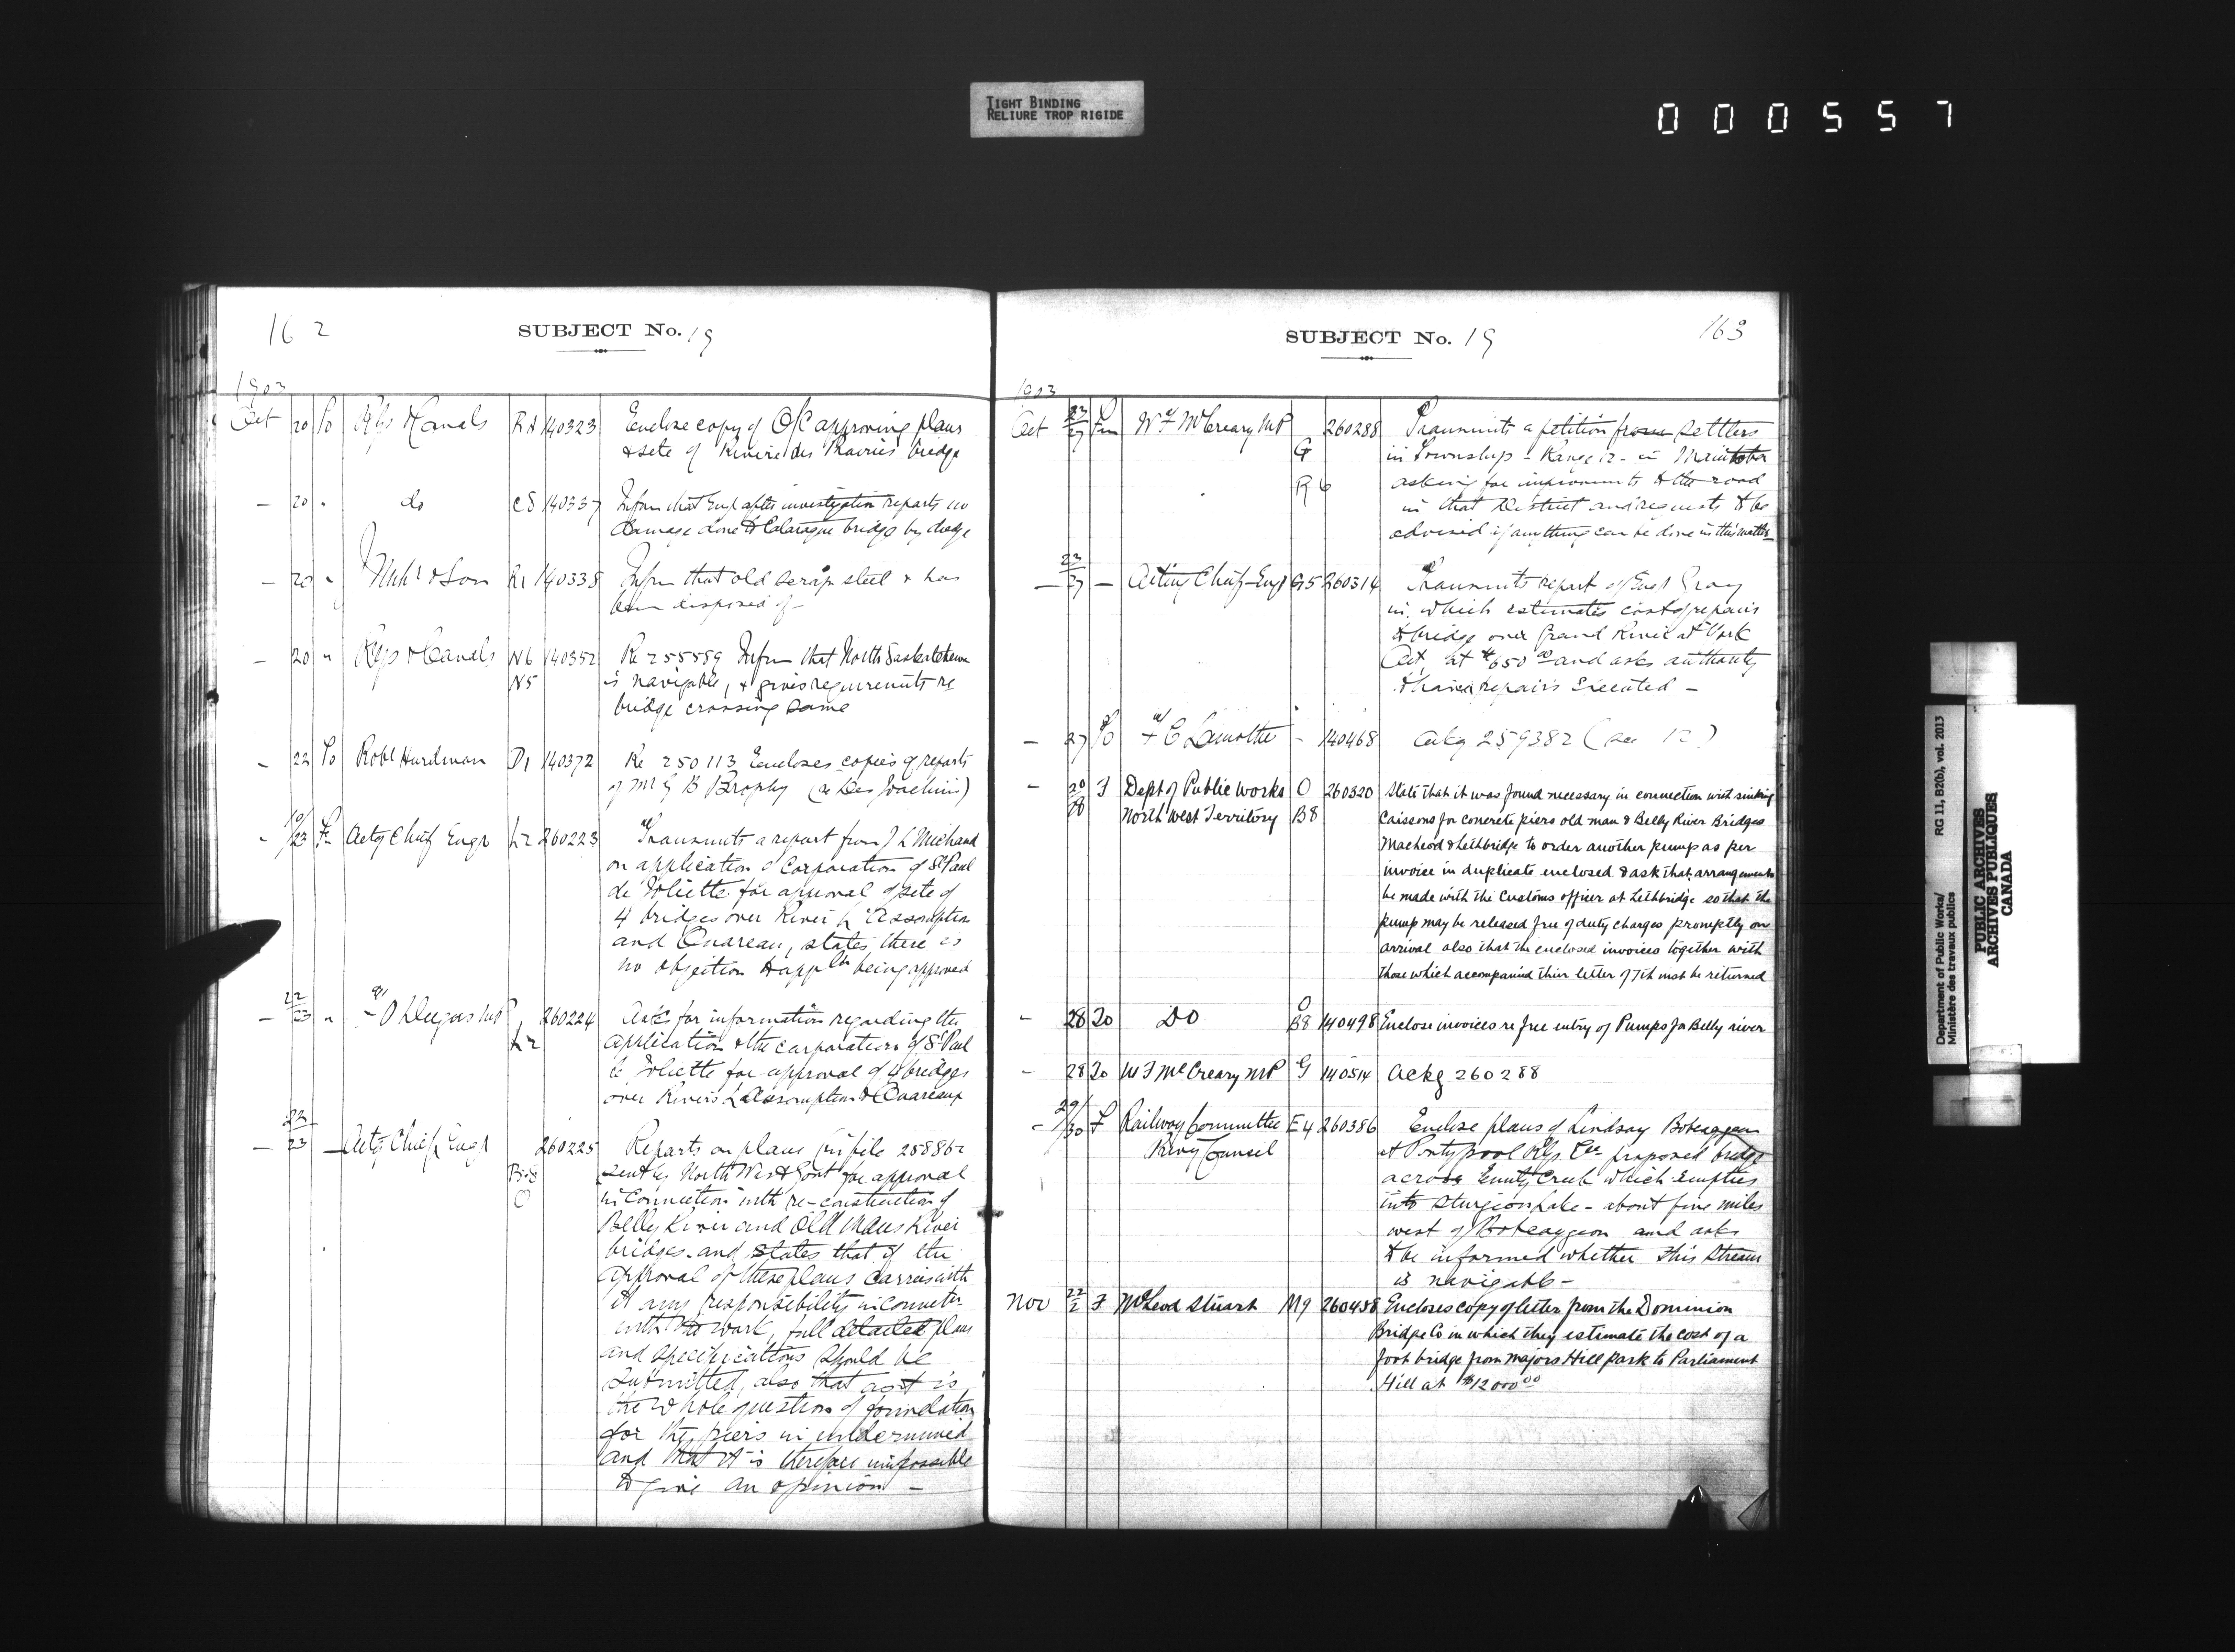 TIGHT BINDING
RELIURE TROP RIGIDE
000557
162
SUBJECT No. 19
1903
Oct 20 To Rlys & Canals R4 140323 Enclose copy of O/C approving plans
& site of Riviere des Prairies bridge
— 20 " do C8 140337 Inform that Engr after investigation reports no
damage done to Calarogue bridge by dredge
— 20 " & Son R1 140338 Inform that old scrap steel & has
been disposed of —
— 20 " Rlys & Canals N6 140352 Re 255559 Inform that North Saskatchewan
N5 is navigable, & gives requirements re
bridge crossing same
- 22 To Robt Hurdman D1 140372 Re 250113 Encloses copies of reports
of Mr G B Brophy (re Des Joachims)
- 10/23 Fm Actg Chief Engr L2 260223 Transmits a report from J L Michaud
on application of Corporation of St Paul
de Joliette for approval of site of
4 bridges over River L'Assomption
and Ouareau, states there is
no objection to appltn being approved
— 22/23 " Dugas MP L2 260224 Asks for information regarding the
application of the corporation of St Paul
de Joliette for approval of 4 bridges
over Rivers L'Assomption & Ouareau
— 22/23 — Actg Chief Engr 260225 Reports on plans in file 258862
B8 sent by North West Govt for approval
O in Connection with re-construction of
Belly River and Old Mans River
bridges and states that if the
approval of these plans carries with
it any responsibility in connectn
with the work, full detailed plans
and specifications should be
submitted, also that as it is
the whole question of foundation
for the piers is undermined
and that it is therefore impossible
to give an opinion —
SUBJECT No. 19
163
1903
Oct 23/27 Fm W F McCreary MP 260288 Transmits a petition from settlers
G in Township - Range 12 - in Manitoba
R 6 asking for improvmts to the road
in that District and requests to be
advised if anything can be done in this matter
— 23/27 — Acting Chief Engr G5 260314 Transmits report of Engr Gray
in which estimates cost of repairs
to bridge over Grand River at York
Ont, at $650 00 and asks authority
to have repairs executed —
— 27 To C Lamothe - 140468 Ackg 259382 (see 12)
- 20/28 F Dept of Public Works O 260320 State that it was found necessary in connection with sinking
North West Territory B8 Caissons for concrete piers old man & Belly River Bridges
Macleod & Lethbridge to order another pump as per
invoice in duplicate enclosed & ask that arrangements
be made with the Customs officer at Lethbridge so that the
pump may be released free of duty charges promptly on
arrival also that the enclosed invoices together with
those which accompanied their letter of 7th inst be returned
- 28 To Do O B8 140498 Enclose invoices re free entry of Pumps for Belly river
- 28 To W F McCreary MP G 140514 Ackg 260288
- 29/30 F Railway Committee E4 260386 Enclose plans of Lindsay Bobcaygeon
Privy Council & Pontypool Rly Cos proposed bridge
across Emily Creek which empties
into Sturgeon Lake - about five miles
west of Bobcaygeon and asks
to be informed whether this Stream
is navigable —
Nov 22/2 F McLeod Stuart M9 260458 Encloses copy of letter from the Dominion
Bridge Co in which they estimate the cost of a
foot bridge from Majors Hill Park to Parliament
Hill at $12000 00
Department of Public Works/ RG 11, B2(b), vol. 2013
Ministère des travaux publics
PUBLIC ARCHIVES
ARCHIVES PUBLIQUES
CANADA